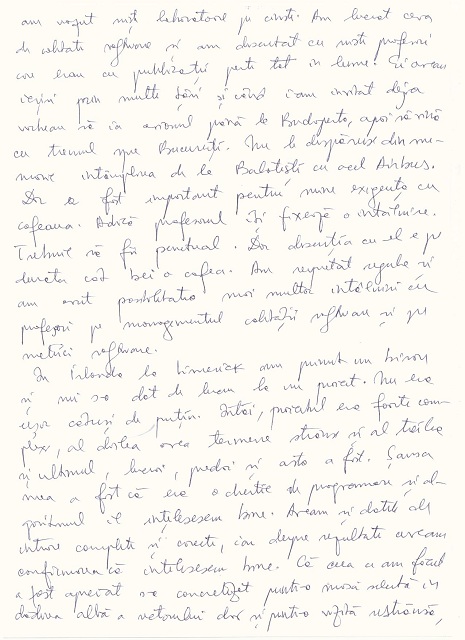 am vizitat niște laboratoare și cursuri. Am lucrat ceva
de calitate software și am discutat cu niște profesori
care erau cu publicații peste tot în lume. Ei aveau
ieșiri prin multe țări și când i-am invitat deja
vroiau să ia avionul până la Budapesta, apoi să vină
cu trenul spre București. Nu le dispăruse din me-
morie întâmplarea de la Balotești cu acel Airbus.
Dar a fost important pentru mine exigența cu
cafeaua. Adică profesorul îți fixează o întâlnire.
Trebuie să fii punctual. Dar discuția cu el e pe
durata cât bei o cafea. Am respectat regula și
am avut posibilitatea mai multor întâlniri cu
profesori pe managementul calității software și pe
metrici software.
În Irlanda la Limerick am primit un birou
și mi s-a dat de lucru la un proiect. Nu era
ușor câtuși de puțin. Întâi, proiectul era foarte com-
plex, al doilea avea termene strânse și al treilea
și ultimul, lucrai, predai și asta a fost. Șansa
mea a fost că era o chestie de programare și al-
goritmul îl înțelesesem bine. Aveam și datele de
intrare complete și corecte, iar despre rezultate aveam
confirmarea că înțelesesem bine. Că ceea ce am făcut
a fost apreciat s-a concretizat printr-o masă selectă în
clădirea albă a rectorului dar și printr-o vizită restrânsă,